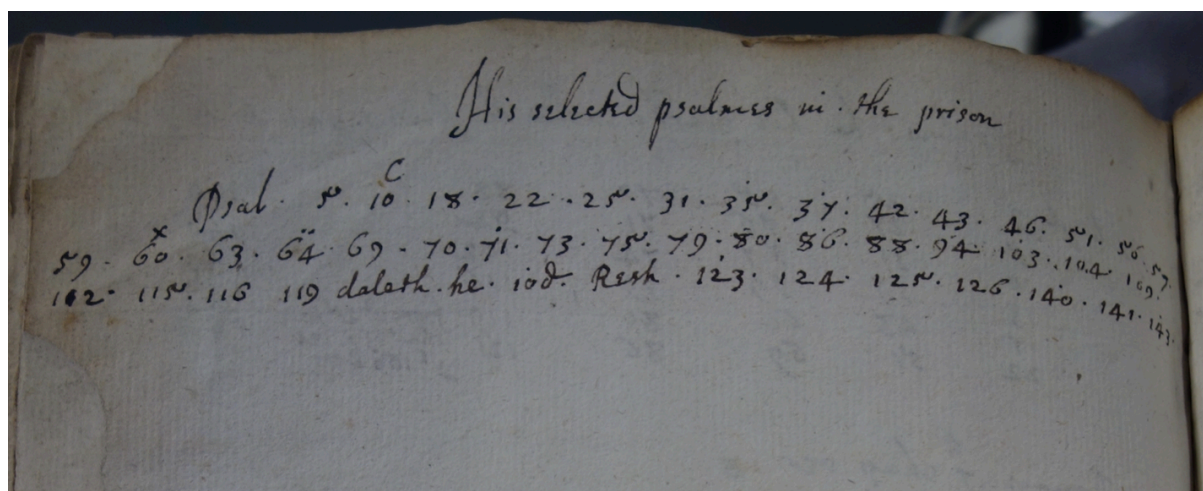 His selected psalmes in · the prison
C
Psal · 5 · 10 · 18 · 22 · 25 · 31 · 35 · 37 · 42 · 43 · 46 · 51 · 56 · 57 ·
x
59 · 60 · 63 · 64 · 69 · 70 · 71 · 73 · 75 · 79 · 80 · 86 · 88 · 94 · 103 · 104 · 109 ·
112 · 115 · 116 119 daleth · he · iod · Resh · 123 · 124 · 125 · 126 · 140 · 141 · 143 ·